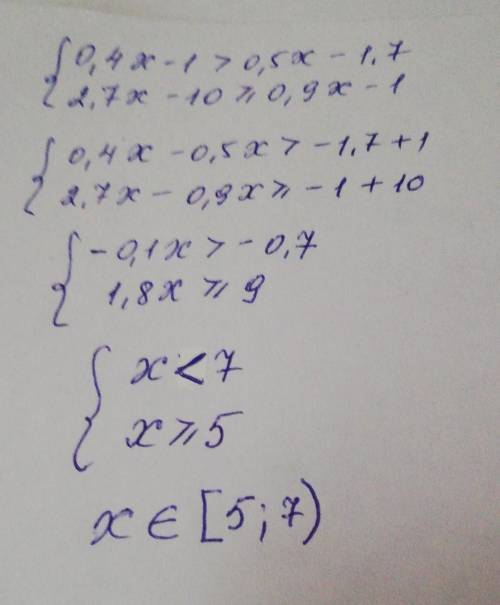 { 0,4x - 1 > 0,5x - 1,7
2,7x - 10 ⩾ 0,9x - 1
{ 0,4x - 0,5x > -1,7 + 1
2,7x - 0,9x ⩾ -1 + 10
{ -0,1x > -0,7
1,8x ⩾ 9
{ x < 7
x ⩾ 5
x ∈ [5; 7)